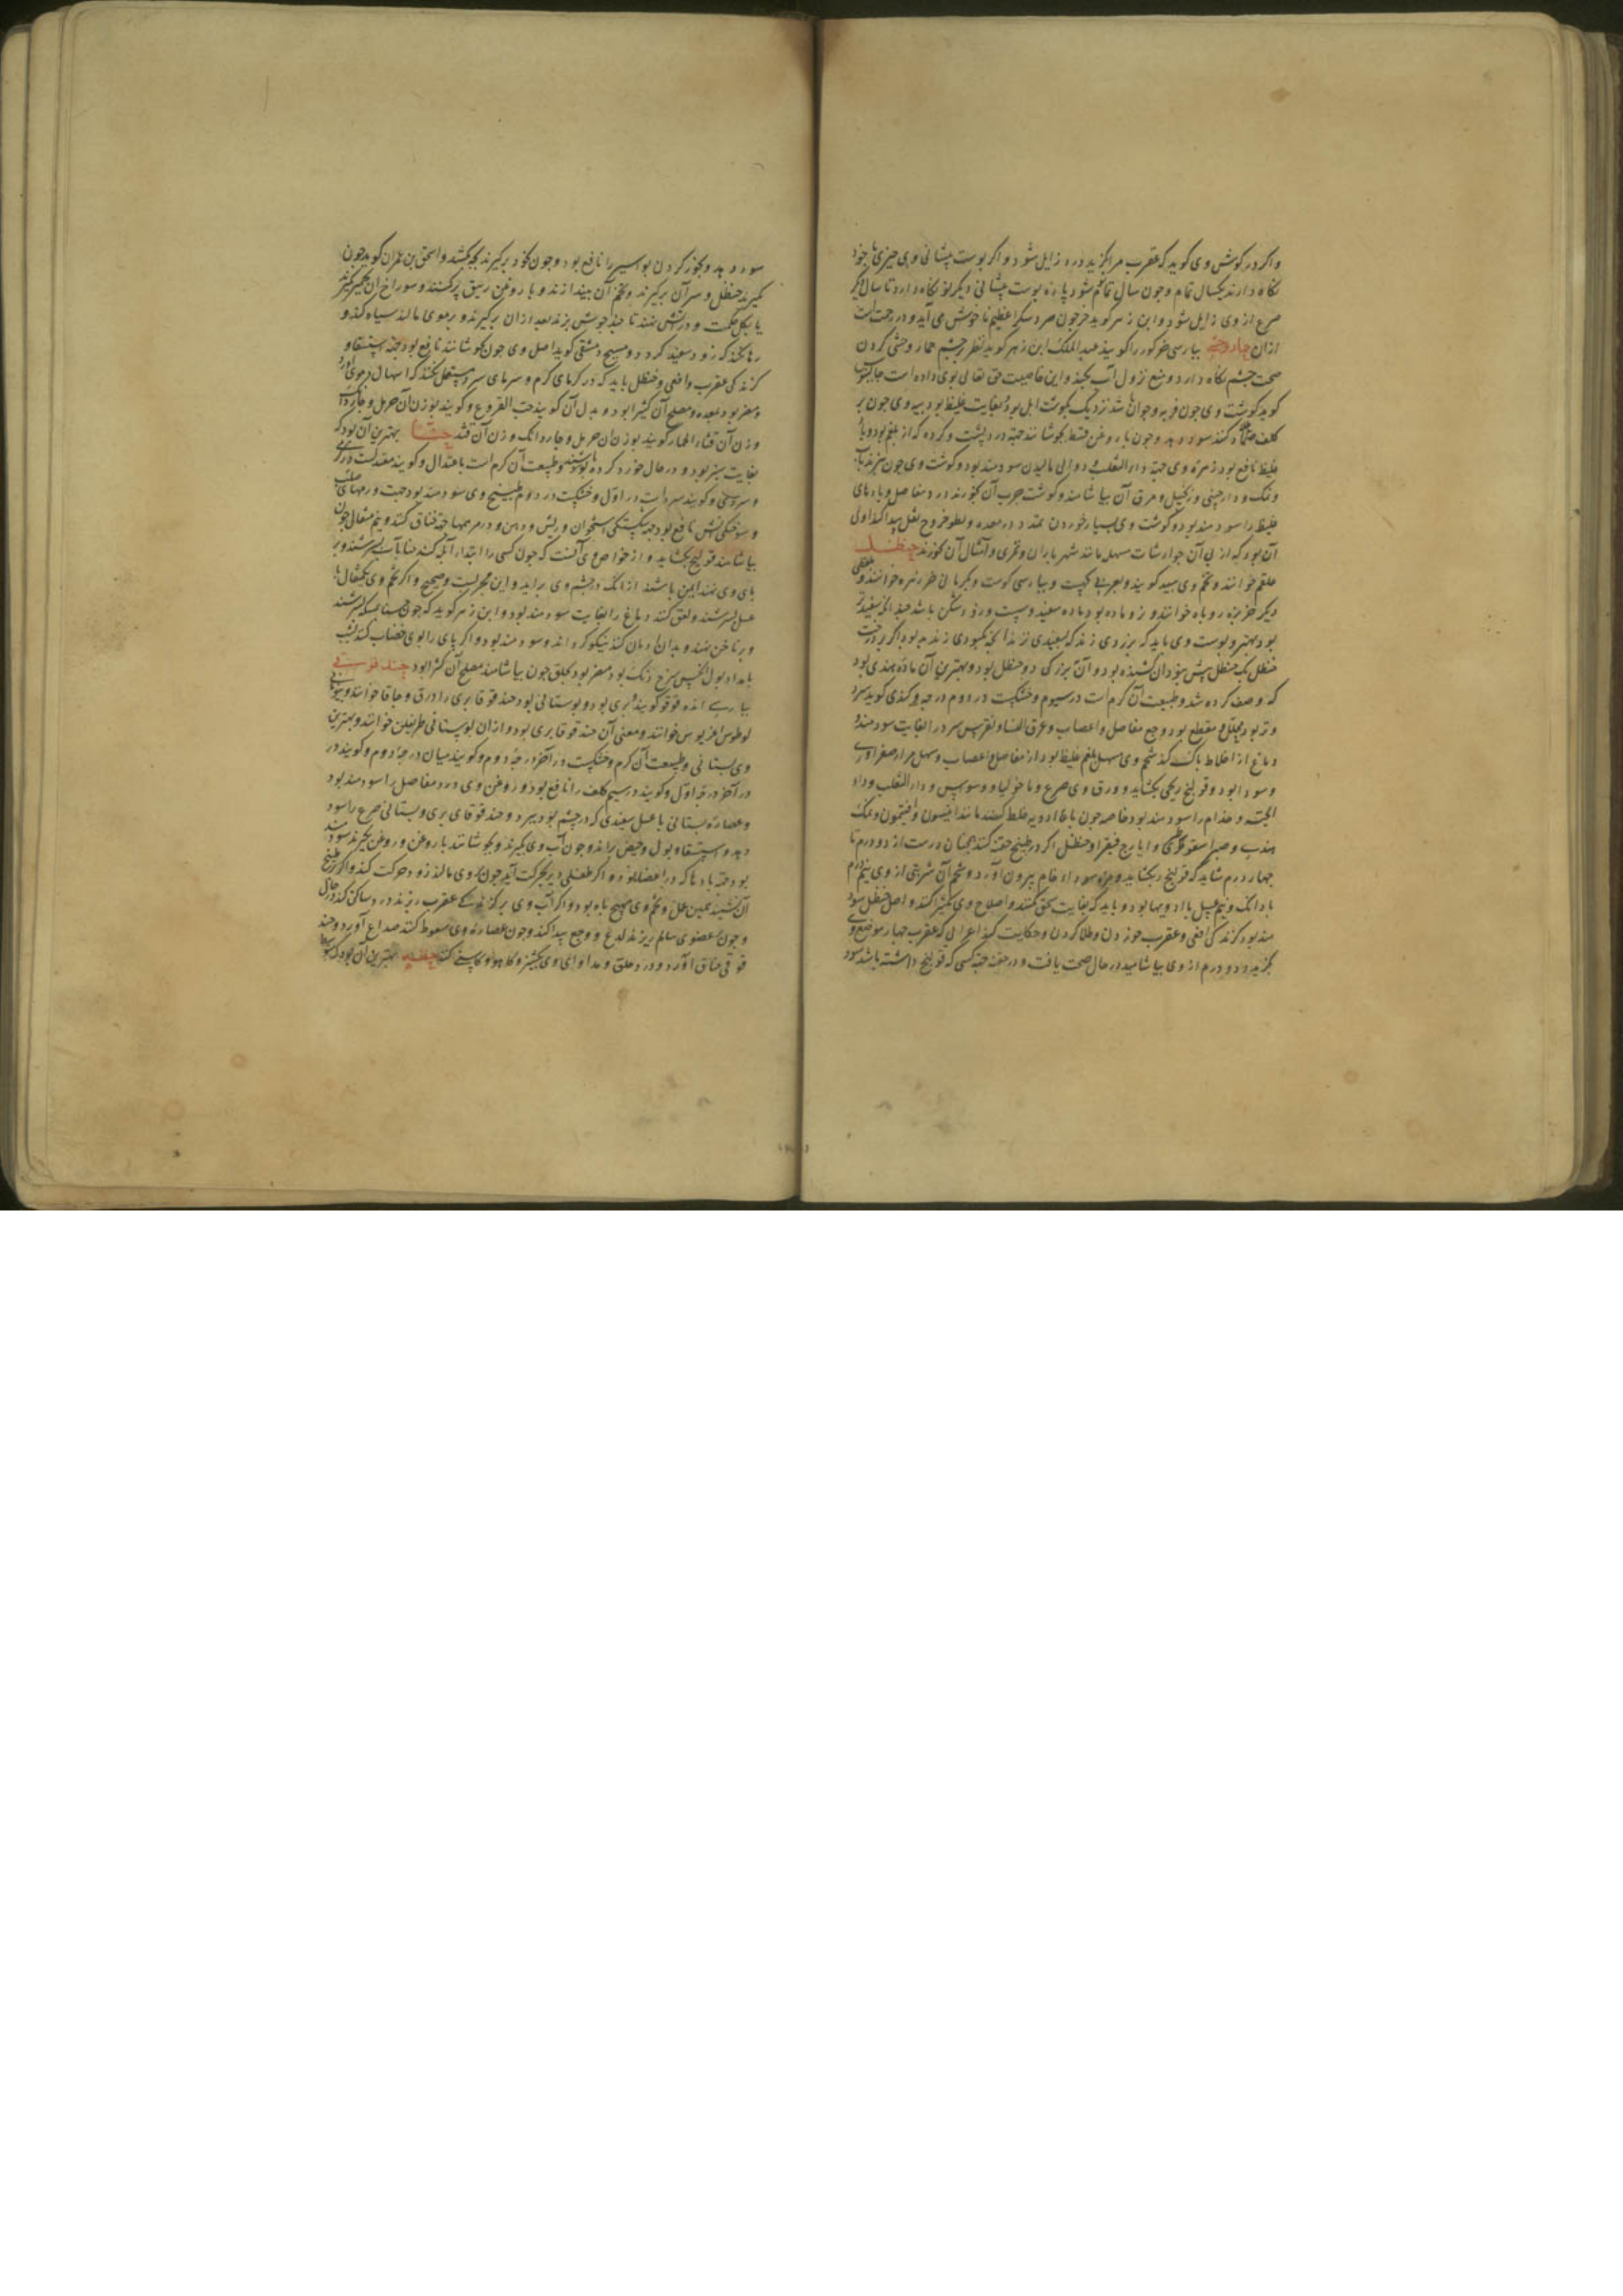 واکر در کوش وی کوید که عقرب مرا بکزید درد زایل شود و اکر پوست پیشانی وی
نکاه دارند یکسال تمام و چون سال تمام شود پاره پوست پیشانی دیکر نو نکاه دارد تا سال دیکر
صرع از وی زایل شود و ابن زهر کوید خر چون
ازان حمار وحشی بپارسی خر کور را کویند عبد الملک ابن زهر کوید نظر در چشم حمار وحشی کردن
صحت چشم نکاه دارد و منع نزول آب بکند و این خاصیت حق تعالی بوی داده است جالینوس
کوید کوشت وی چون فربه و جوان باشد نزدیک بکوشت ایل بود بغایت غلیظ بود پیه وی چون بر
کلف ضماد کنند سود دهد و چون با روغن قسط بجوشانند جهة درد پشت و کرده که از بلغم بود و باد
غلیظ نافع بود زهره وی جهة داء الثعلب و دوالی مالیدن سودمند بود و کوشت وی چون بپزند بآب
ونمک و دارچینی و زنجبیل و مرق آن بیاشامند و کوشت چرب آن بخورند درد مفاصل و بادهای
غلیظ را سودمند بود و کوشت وی بسیار خوردن تمدد در معده و بطو خروج ثفل پیدا کند اولی
آن بود که از پی آن جوارشات مسهله مانند شهریاران و تمری و امثال آن بخورند حنظل
علقم خوانند و تخم وی هبید کویند و بپارسی کبست و بکرمانی خر زهره خوانند و
دیکر خربزه روباه خوانند و نر و ماده بود ماده سفید و سست و زود شکن باشد
بود بهتر و پوست وی باید که بزردی زند که بسفیدی زند
حنظل یک حنظل بیش نبود آن کشنده بود و آن بزرکی دو حنظل بود و بهترین آن ماده هندی بود
که وصف کرده شد و طبیعت آن کرم است در سیوم و خشکست در دوم و کندی کوید سرد
وتر بود محلل و مقطع بود وجع مفاصل و اعصاب و عرق النسا و نقرس سرد را بغایت سودمند بود
دماغ از اخلاط پاک کند شحم وی مسهل بلغم غلیظ بود از مفاصل و اعصاب و مسهل مرار صفراوی
وسودا بود و قولنج ریحی بکشاید و ورق وی صرع و مالیخولیا و وسواس و داء الثعلب و داء
الحیه و جذام را سودمند بود خاصه چون با ادویه خلط کنند مانند انیسون و افتیمون و نمک
هندی و صبر اسقوطری و ایارج فیقرا و حنظل اکر در طبیخ حقنه کنند همچنان درست از دو درم تا
چهار درم شاید که قولنج بکشاید و مره سودا و خام بیرون آورد و شحم آن شربتی از وی نیم درم
با دانک و نیم عسل با ادویها بود و باید که بغایت سحق کنند و اصلاح وی بکثیرا کنند و اصل حنظل سود
مند بود کزندکی افعی و عقرب خوردن و طلا کردن و حکایت کند اعرابی که عقرب چهار موضع وی
بکزید و دو درم از وی بیاشامید در حال صحت یافت و در حقنه جهة کسی که قولنج داشته باشد سود
سود دهد و بخور کردن بواسیر را نافع بود و چون بخود برکیرند بچه بکشد و اسحق بن عمران کوید چون
بکیرند حنظل و سر آن برکیرند و تخم آن بیندازند و با روغن زنبق پر کنند و سوراخ آن بخمیر بکیرند
یا بکل حکمت و در آتش نهند تا چند جوش بزند بعد ازان برکیرند و بر موی مالند سیاه کند و
رها نکند که زود سفید کردد و مسیح دمشقی کوید اصل وی چون بجوشانند نافع بود جهة استسقا و
کزندکی عقرب و افعی و حنظل باید که در کرمای کرم و سرمای سرد مستعمل نکند که اسهال دموی آورد
ومضر بود بمعده و مصلح آن کثیرا بود و بدل آن کویند حب القروع و کویند بوزن آن حرمل و چهار دانک
وزن آن قثاء الحمار کویند بوزن آن حرمل و چهار دانک وزن آن قند حنا بهترین آن بود که
بغایت سبز بود و در حال خورد کرده باشند و طبیعت آن کرم است باعتدال و کویند معتدلست در کرمی
وسردی و کویند سرد است در اول و خشکست در دوم طبیخ وی سودمند بود جهت ورمهای صلب
وسوختکی آتش نافع بود جهة شکستکی استخوان و ریش دهن و در مرهمها جهة خناق کنند و نیم مثقال چون
بیاشامند قولنج بکشاید و از خواص وی آنست که چون کسی را ابتدای آبله کند حنا بآب بسرشند و بر
پای وی نهند ایمن باشند از آنکه در چشم وی برآید و این مجربست و صحیح و اکر تخم وی یکمثقال با
عسل بسرشند و لعق کنند دماغ را بغایت سودمند بود و ابن زهر کوید که چون حنا بسرکه بسرشند
وبر ناخن نهند و بدان ادمان کنند نیکو کرداند و سودمند بود و اکر پای را بوی خضاب کنند بشب
بامداد بول آنکس سرخ رنک بود مضر بود بحلق چون بیاشامند مصلح آن کثیرا بود حندقوقی
بپارسی انده قوقو کویند و بری بود و بوستانی بود حندقوقا بری را ذرق و حباقا خوانند و بیونانی
لوطوس اغریوس خوانند و معنی آن حندقوقا بری بود و ازان بوستانی طریفلن خوانند و بهترین
وی بستانی و طبیعت آن کرم و خشکست در آخر درجه دوم و کویند میان درجه دوم و کویند در
در آخر درجه اول و کویند در سیم کلف را نافع بود و روغن وی درد مفاصل را سودمند بود
وعصاره بستانی با عسل سفیدی که در چشم بود ببرد و حندقوقای بری و بستانی صرع را سود
دهد و استسقا و بول و حیض براند و چون آب وی بکیرند و بجوشانند با روغن و روغن بکیرند سودمند
بود جهة بادها که در اعضا بود و اکر طفلی دیر بحرکت آید چون بر وی مالند زود حرکت کند و اکر در طبیخ
آن نشینند همین عمل و تخم وی مهیج باه بود و اکر آب وی بر کزندکی عقرب ریزند درد ساکن کند در حال
وچون بر عضوی سالم ریزند لدغ و وجع پیدا کند و چون عصاره وی سعوط کنند صداع آورد و حند
قوقی خناق آورد و درد حلق و مداوای وی بکشنیز و کاهو و کاسنی کنند حنطه بهترین آن بود که